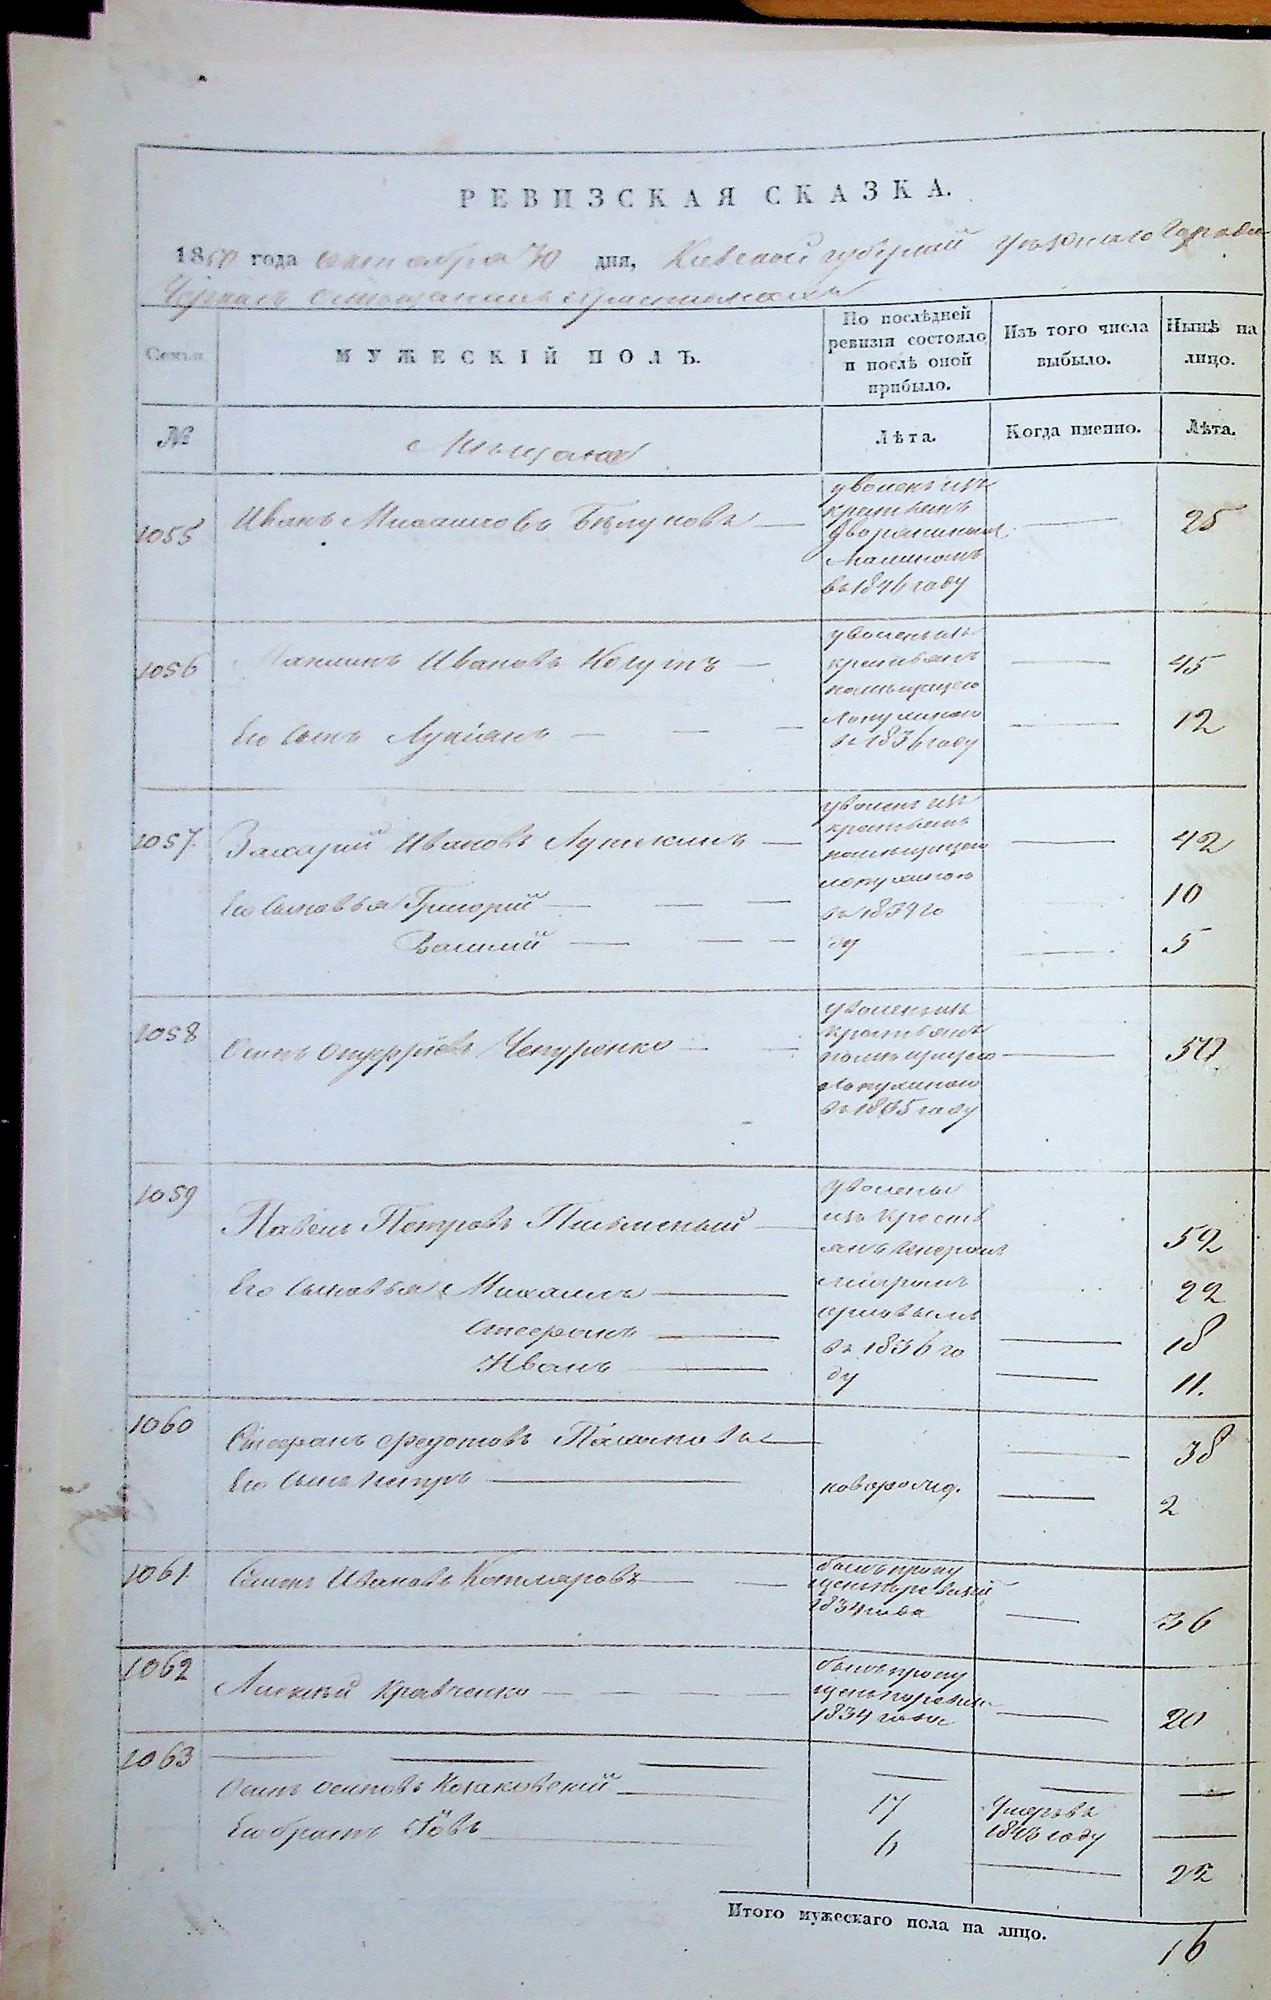 РЕВИЗСКАЯ СКАЗКА.
1850 года октября 30 дня, Киевской губерніи уѣзднаго Города
Семьи
МУЖЕСКІЙ ПОЛЪ.
По послѣдней ревизіи состояло и послѣ оной прибыло.
Изъ того числа выбыло.
Нынѣ на лицо.
№
Мѣщане
Лѣта.
Когда именно.
Лѣта.
1055
Иванъ Михайловъ Бѣлуновъ
уволенъ изъ
крестьянъ
Дворяниномъ
въ 1846 году
25
1056
Ивановъ Когутъ
уволенъ изъ
крестьянъ
помѣщицею
Лопухиною
въ 1836 году
45
Его сынъ Лукіянъ
12
1057
Захарій Ивановъ
уволенъ изъ
крестьянъ
помѣщицею
Лопухиною
въ 1839 го
ду
42
Его сыновья Григорій
10
Василій
5
1058
Осипъ Онуфріевъ Чепуренко
уволенъ изъ
крестьянъ
помѣщицею
Лопухиною
въ 1835 году
50
1059
Павелъ Петровъ Письменный
уволены
изъ крестья
янъ Генераломъ
въ 1836 го
ду
52
Его сыновья Михаилъ
22
Стефанъ
18
Иванъ
11.
1060
Стефанъ Федотовъ
38
Его сынъ Петръ
новорожд.
2
1061
Семенъ Ивановъ Котляровъ
былъ пропу
щенъ по ревизіи
1834 года
36
1062
Алексѣй Кравченко
былъ пропу
щенъ по ревизіи
1834 года
20
1063
Осипъ Осиповъ Козаковскій
17
Умеръ въ
1846 году
Его братъ Іовъ
6
22
Итого мужескаго пола на лицо.
16